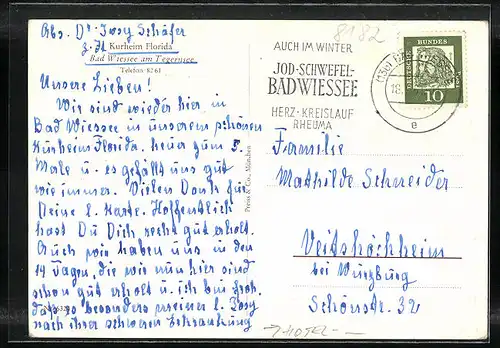 Abs. Dr. Josy Schäfer
z. Zt Kurheim Florida
Bad Wiessee am Tegernsee
Telefon 8261
Unsere Lieben!
Wir sind wieder hier in
Bad Wiessee in unserem schönen
Kurheim Florida. heuer zum 5.
Male u. es gefällt uns gut
wie immer. Vielen Dank für
Deine l. Karte. Hoffentlich
hast Du Dich recht gut erholt.
Auch wir haben uns in den
14 Tagen, die wir nun hier sind
schon gut erholt u. ich bin froh,
daß es besonders meiner l. Josy
nach ihrer schweren Erkrankung
Preiss & Co., München
8182
AUCH IM WINTER
JOD-SCHWEFEL-
BAD WIESSEE
HERZ-KREISLAUF
RHEUMA
18.
e
DEUTSCHE
BUNDES
POST
10
Familie
Mathilde Schneider
Veitshöchheim
bei Würzburg
Schönstr. 32
→ HOTEL -